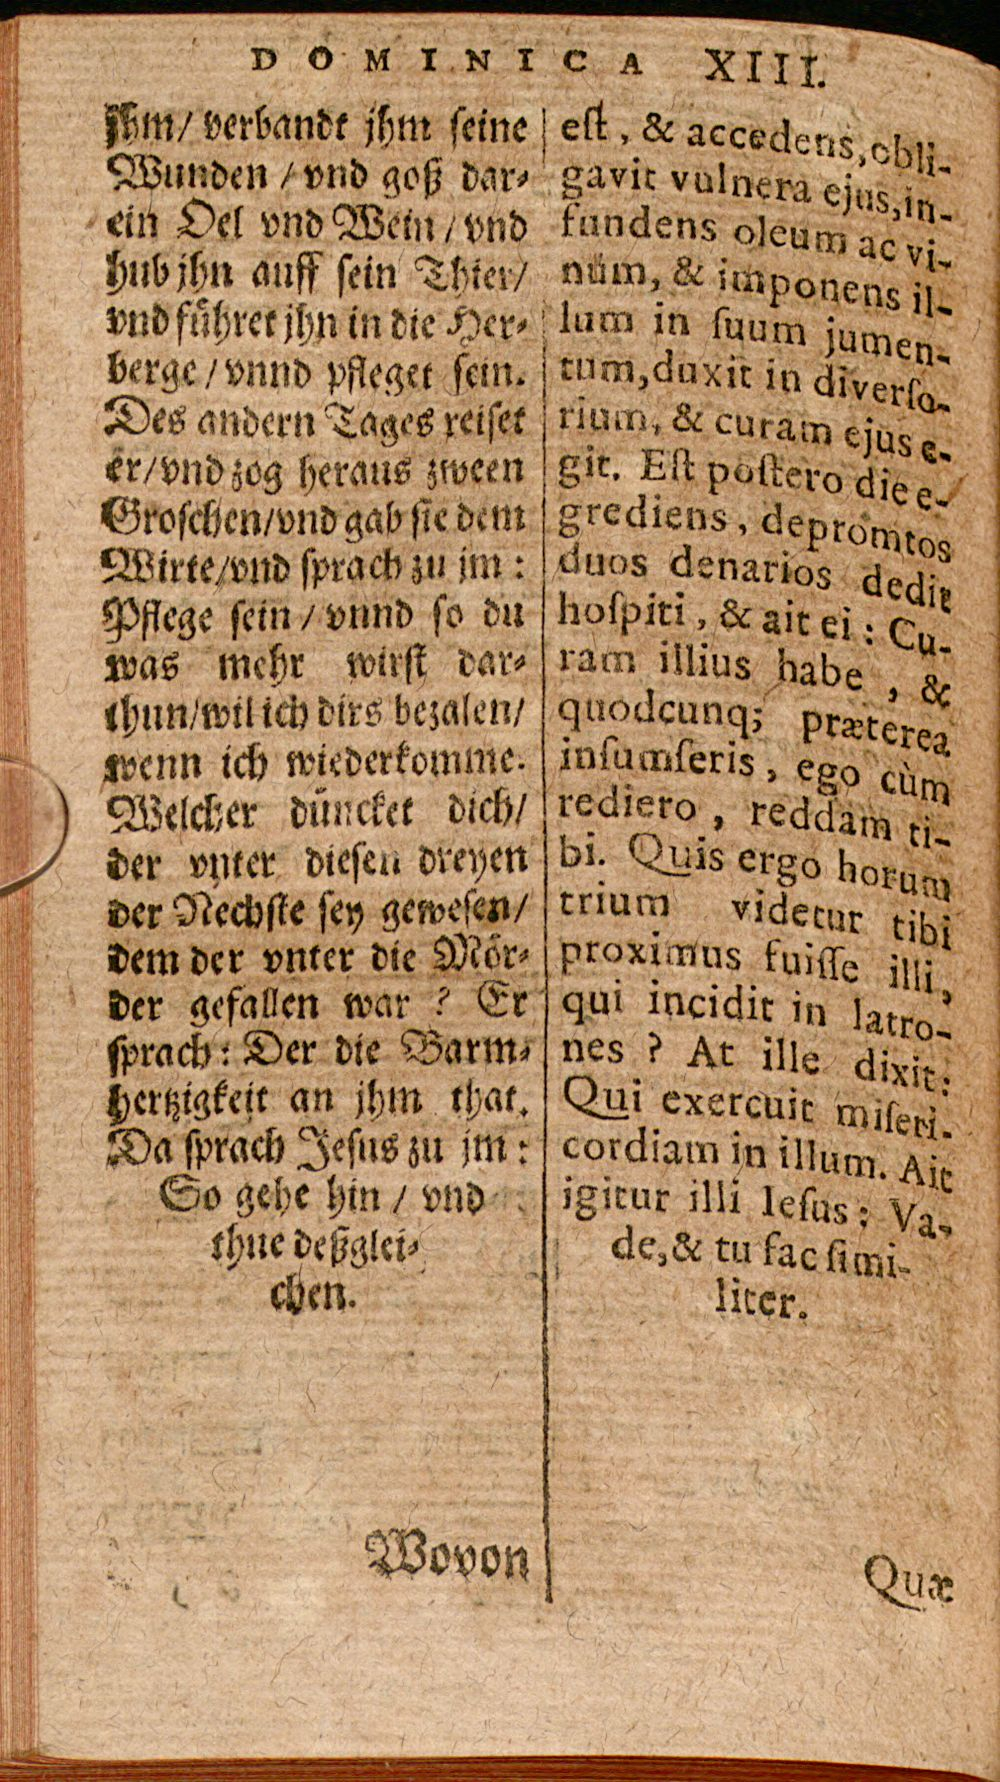 DOMINICA XIII.
jhm/ verbandt jhm ſeine
Wunden / vnd goß dar-
ein Oel vnd Wein / vnd
hub jhn auff ſein Thier/
vnd führet jhn in die Her-
berge / vnnd pfleget ſein.
Des andern Tages reiſet
er/vnd zog heraus zween
Groſchen/vnd gab ſie dem
Wirte/vnd ſprach zu jm :
Pflege ſein / vnnd ſo du
was mehr wirſt dar-
thun/wil ich dirs bezalen/
wenn ich wiederkomme.
Welcher düncket dich/
der vnter dieſen dreyen
der Nechſte ſey geweſen/
dem der vnter die Mör-
der gefallen war ? Er
ſprach : Der die Barm-
hertzigkeit an jhm that.
Da ſprach Jeſus zu jm :
So gehe hin / vnd
thue deßglei-
chen.
Wovon
eſt , & accedens, obli-
gavit vulnera ejus, in-
fundens oleum ac vi-
num, & imponens il-
lum in ſuum jumen-
tum, duxit in diverſo-
rium, & curam ejus e-
git. Eſt poſtero die e-
grediens, depromtos
duos denarios dedit
hoſpiti, & ait ei : Cu-
ram illius habe , &
quodcunq; præterea
inſumſeris, ego cùm
rediero , reddam ti-
bi. Quis ergo horum
trium videtur tibi
proximus fuiſſe illi,
qui incidit in latro-
nes ? At ille dixit:
Qui exercuit miſeri-
cordiam in illum. Ait
igitur illi Ieſus : Va-
de, & tu fac ſimi-
liter.
Quæ